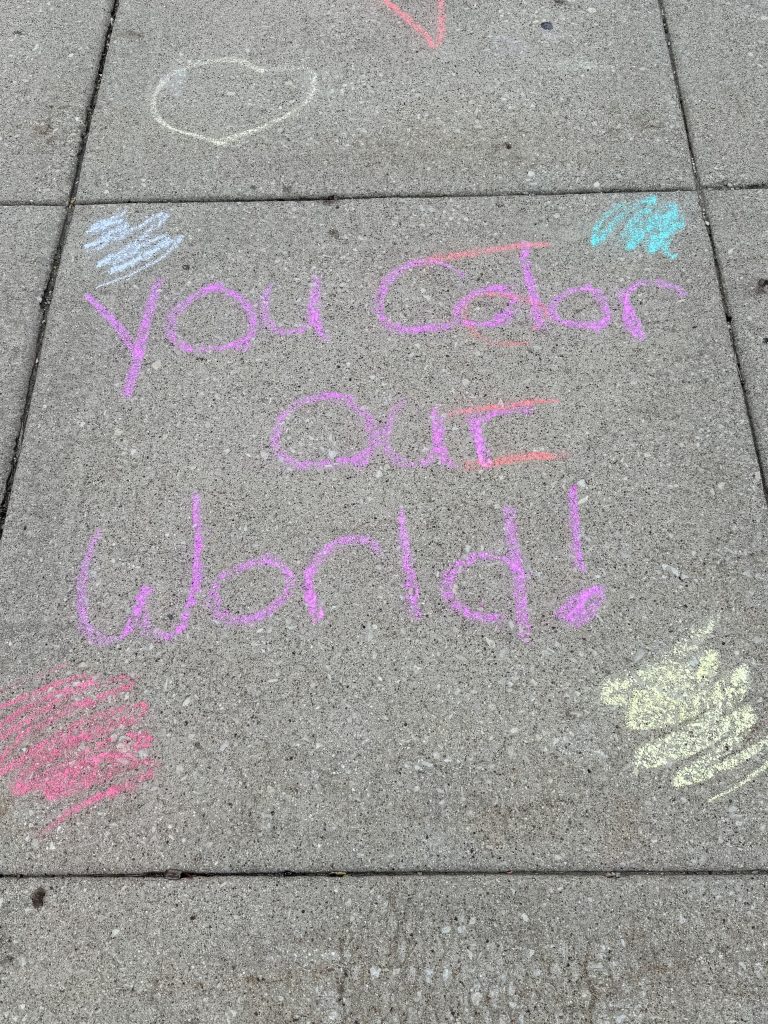 you Color
our
World!